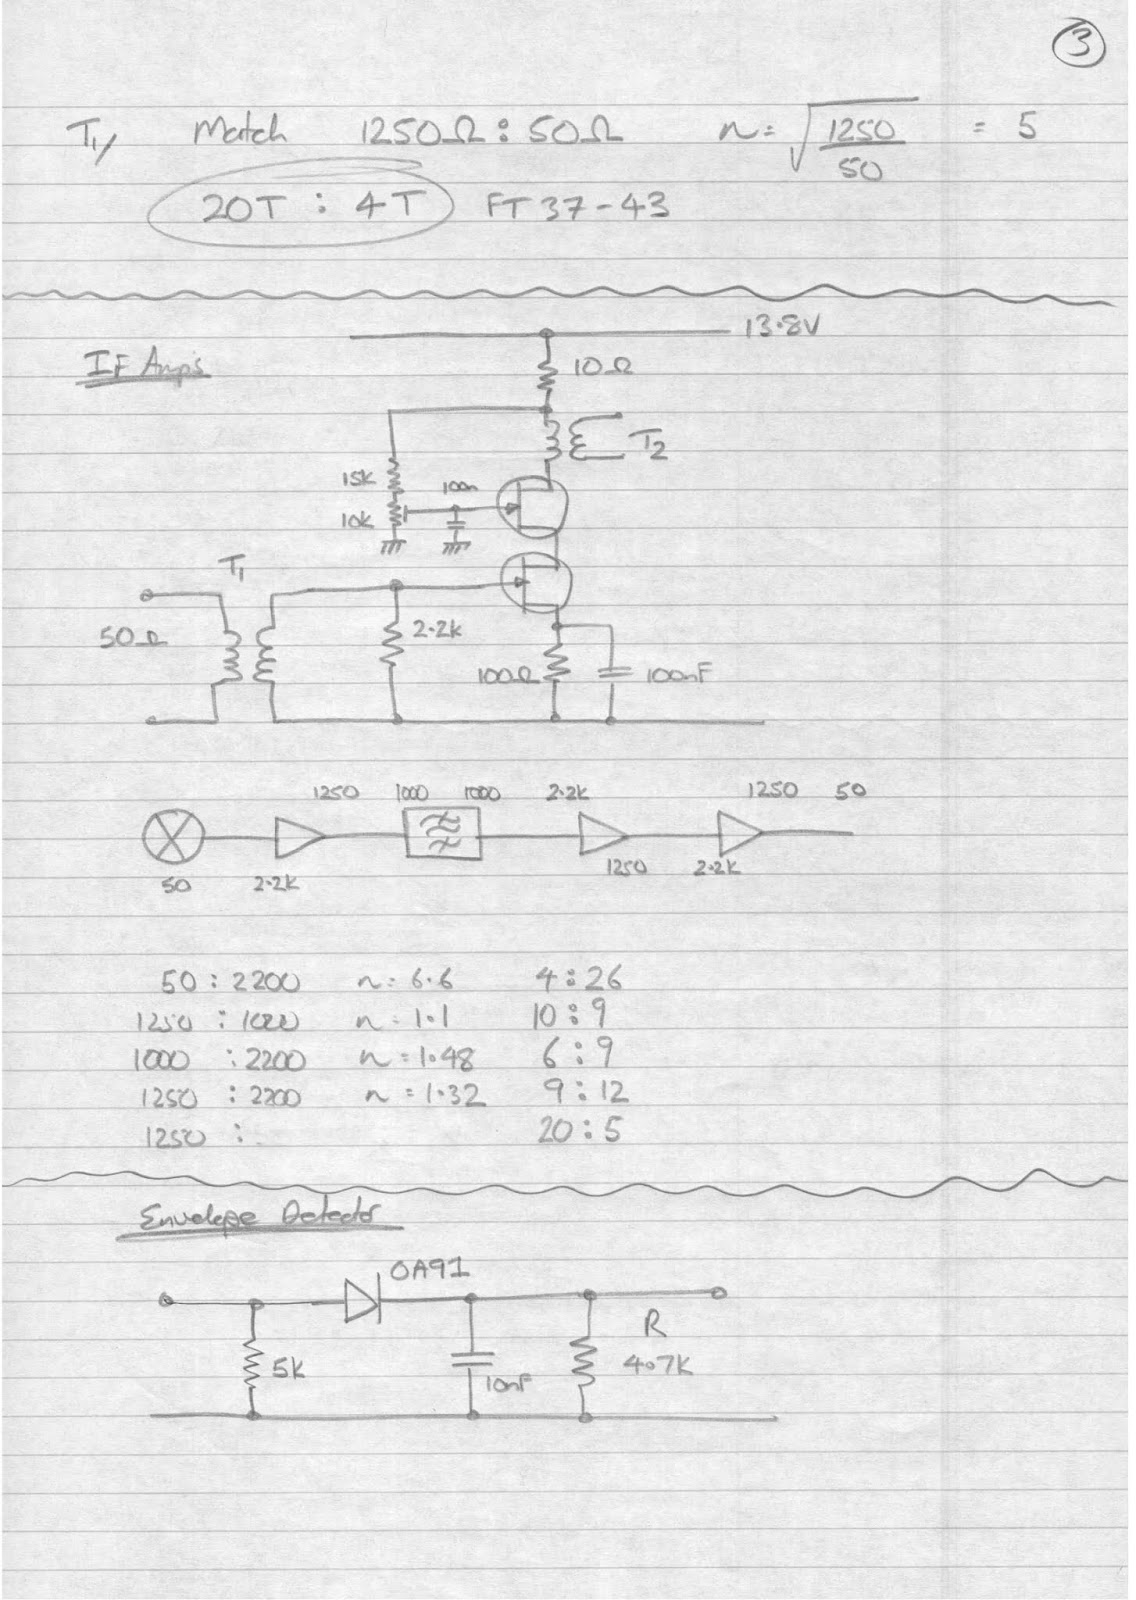 3
T1/ Match 1250Ω : 50Ω n = √1250/50 = 5
20T : 4T FT 37-43
13.8V
IF Amps
10Ω
T2
15k
100n
10k
T1
50Ω
2.2k
100Ω
100nF
1250 1000 1000 2.2k 1250 50
50 2.2k 1250 2.2k
50 : 2200 n = 6.6 4 : 26
1250 : 1000 n = 1.1 10 : 9
1000 : 2200 n = 1.48 6 : 9
1250 : 2200 n = 1.32 9 : 12
1250 : 20 : 5
Envelope Detector
OA91
R
5K
10nF
4.7K